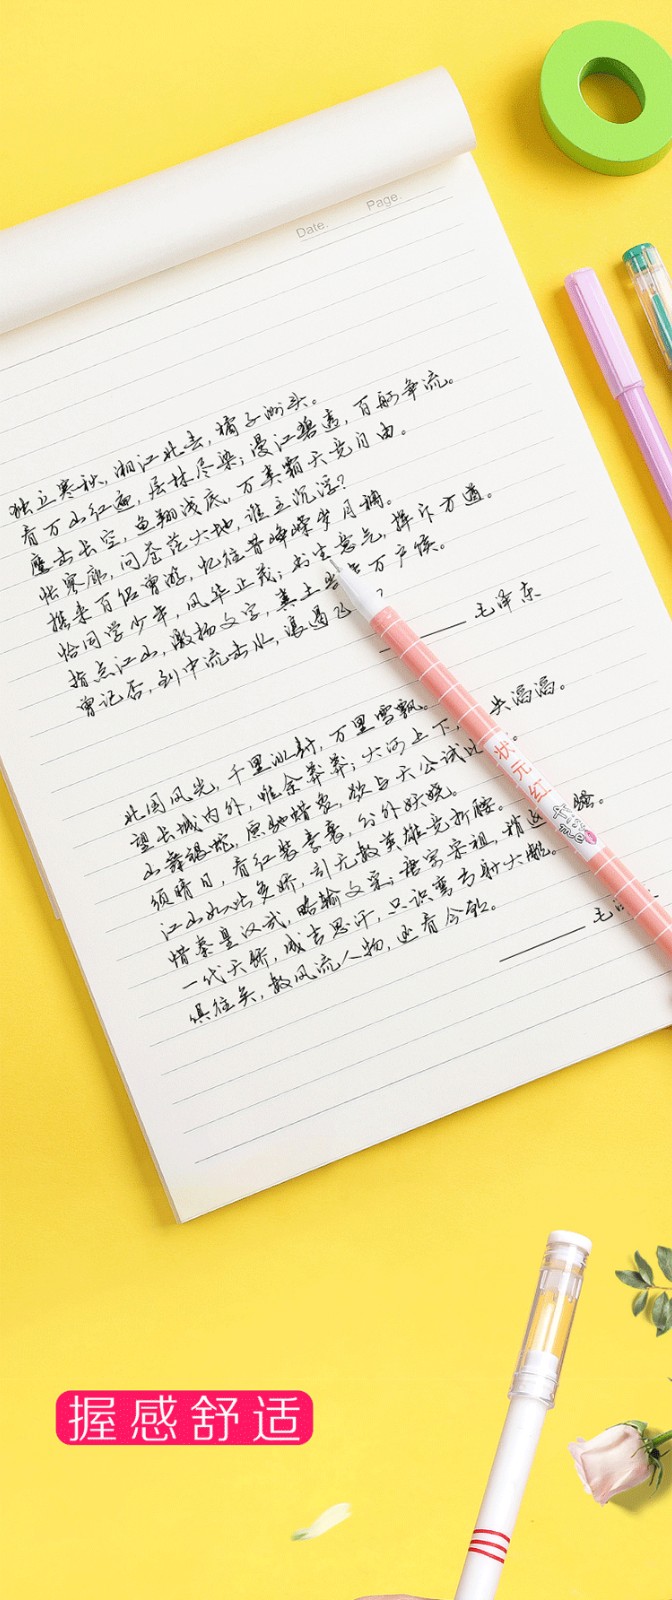 Date.
Page.
独立寒秋,湘江北去,橘子洲头。
看万山红遍,层林尽染;漫江碧透,百舸争流。
鹰击长空,鱼翔浅底,万类霜天竞自由。
怅寥廓,问苍茫大地,谁主沉浮?
携来百侣曾游,忆往昔峥嵘岁月稠。
恰同学少年,风华正茂;书生意气,挥斥方遒。
指点江山,激扬文字,粪土当年万户侯。
曾记否,到中流击水,浪遏飞
毛泽东
北国风光,千里冰封,万里雪飘。
望长城内外,惟余莽莽;大河上下,失滔滔。
山舞银蛇,原驰蜡象,欲与天公试比
须晴日,看红装素裹,分外妖娆。
江山如此多娇,引无数英雄竞折腰。
惜秦皇汉武,略输文采;唐宗宋祖,稍逊骚。
一代天骄,成吉思汗,只识弯弓射大雕。
俱往矣,数风流人物,还看今朝。
毛泽
状元红
握感舒适